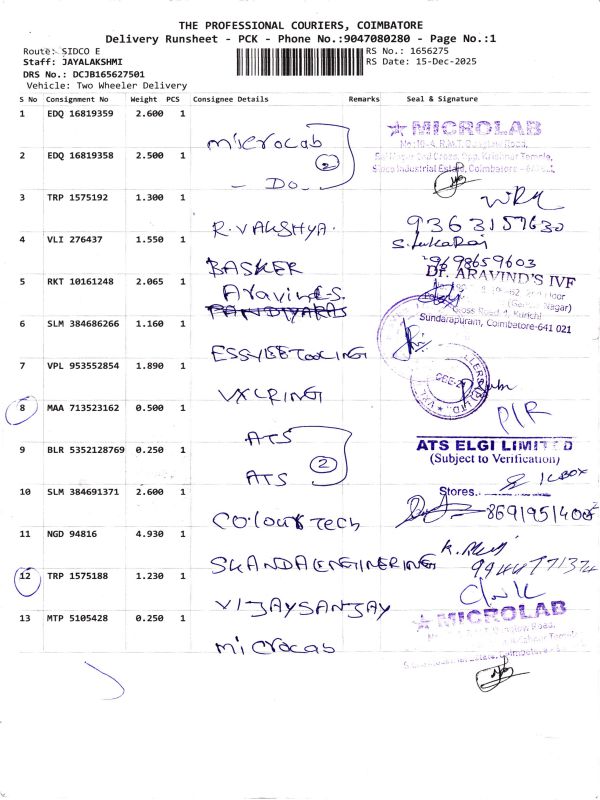 THE PROFESSIONAL COURIERS, COIMBATORE
Delivery Runsheet - PCK - Phone No.:9047080280 - Page No.:1
Route: SIDCO E
RS No.: 1656275
Staff: JAYALAKSHMI
RS Date: 15-Dec-2025
DRS No.: DCJB165627501
Vehicle: Two Wheeler Delivery
S No Consignment No Weight PCS Consignee Details Remarks Seal & Signature
1 EDQ 16819359 2.600 1
microcab
MICROLAB
2 EDQ 16819358 2.500 1
2
Sidco Industrial Estate, Coimbatore
- DO -
3 TRP 1575192 1.300 1
R. VAKSHYA.
9363157630
4 VLI 276437 1.550 1
BASKER
9698659603
5 RKT 10161248 2.065 1
Aravind-S.
Dr. ARAVIND'S IVF
Cross Road, Kurichi
Sundarapuram, Coimbatore-641 021
6 SLM 384686266 1.160 1
ESSVEETOOLING
7 VPL 953552854 1.890 1
VXLRING
8 MAA 713523162 0.500 1
ATS
ATS ELGI LIMITED
(Subject to Verification)
9 BLR 5352128769 0.250 1
2
ATS
Stores.
10 SLM 384691371 2.600 1
COlourTech
11 NGD 94816 4.930 1
SKANDAENGINERING
12 TRP 1575188 1.230 1
VIJAYSANJAY
13 MTP 5105428 0.250 1
MICROLAB
microcab